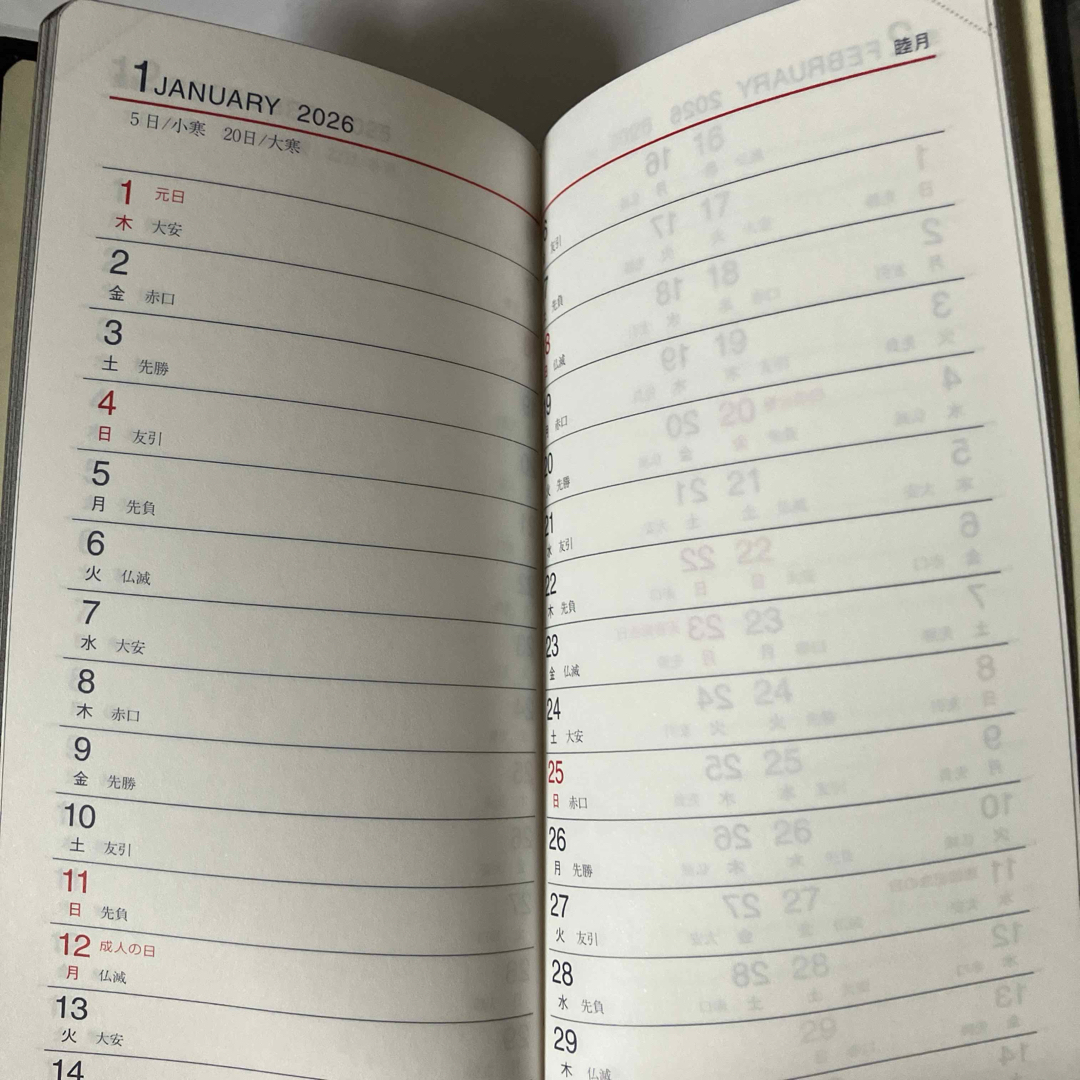 1 JANUARY 2026
5日/小寒 20日/大寒
1 元日
木 大安
2
金 赤口
3
土 先勝
4
日 友引
5
月 先負
6
火 仏滅
7
水 大安
8
木 赤口
9
金 先勝
10
土 友引
11
日 先負
12 成人の日
月 仏滅
13
火 大安
14
睦月
友引
先負
仏滅
赤口
先勝
21
友引
22
木 先負
23
金 仏滅
24
土 大安
25
日 赤口
26
月 先勝
27
火 友引
28
水 先負
29
木 仏滅